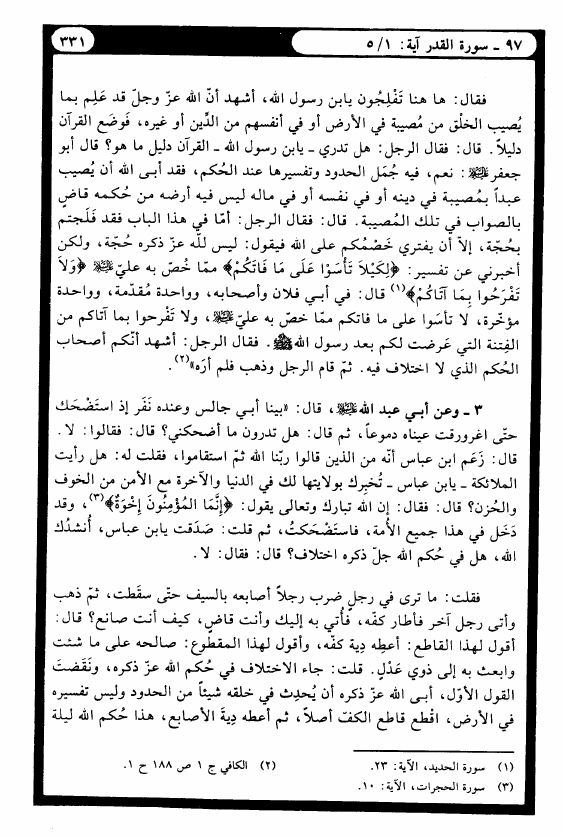 ٩٧ ـ سورة القدر آية: ١/ ٥
٣٣١
فقال: ها هنا تَفْلِجُون يابن رسول الله، أشهد أنّ الله عزّ وجلّ قد عَلِم بما
يُصيب الخلْق من مُصيبة في الأرض أو في أنفسهم من الدِّين أو غيره، فَوضَع القرآن
دليلاً. قال: فقال الرجل: هل تدري ـ يابن رسول الله ـ القرآن دليل ما هو؟ قال أبو
جعفر عليه السلام: نعم، فيه جُمَل الحدود وتفسيرها عند الحُكم، فقد أبى الله أن يُصيب
عبداً بمُصيبة في دينه أو في نفسه أو في ماله ليس فيه أرضه من حُكمه قاضٍ
بالصواب في تلك المُصيبة. قال: فقال الرجل: أمّا في هذا الباب فقد فَلَجتم
بحُجّة، إلاّ أن يفتري خَصْمُكم على الله فيقول: ليس للّه عزّ ذكره حُجّة، ولكن
أخبرني عن تفسير: ﴿لِكَيْلاَ تَأْسَوْا عَلَى مَا فَاتَكُمْ﴾ ممّا خُصّ به عليّ عليه السلام ﴿وَلاَ
تَفْرَحُوا بِمَا آتَاكُمْ﴾(١) قال: في أبي فلان وأصحابه، وواحدة مُقدّمة، وواحدة
مؤخّرة، لا تأسَوا على ما فاتكم ممّا خصّ به عليّ عليه السلام، ولا تَفْرحوا بما آتاكم من
الفِتنة التي عَرضت لكم بعد رسول الله ﷺ. فقال الرجل: أشهد أنّكم أصحاب
الحُكم الذي لا اختلاف فيه. ثمّ قام الرجل وذهب فلم أرَه»(٢).
٣ ـ وعن أبي عبد الله عليه السلام، قال: «بينا أبي جالس وعنده نَفَر إذ استَضْحَك
حتّى اغرورقت عيناه دموعاً، ثم قال: هل تدرون ما أضحكني؟ قال: فقالوا: لا.
قال: زَعَم ابن عباس أنّه من الذين قالوا ربّنا الله ثمّ استقاموا، فقلت له: هل رأيت
الملائكة ـ يابن عباس ـ تُخبِرك بولايتها لك في الدنيا والآخرة مع الأمن من الخوف
والحُزن؟ قال: فقال: إن الله تبارك وتعالى يقول: ﴿إِنَّمَا الْمُؤْمِنُونَ إِخْوَةٌ﴾(٣)، وقد
دَخَل في هذا جميع الأُمة، فاستَضْحَكتُ، ثم قلت: صَدَقت يابن عباس، أُنشدُك
الله، هل في حُكم الله جلّ ذكره اختلاف؟ قال: فقال: لا.
فقلت: ما ترى في رجلٍ ضرب رجلاً أصابعه بالسيف حتّى سقَطت، ثمّ ذهب
وأتى رجل آخر فأطار كفّه، فأُتي به إليك وأنت قاضٍ، كيف أنت صانع؟ قال:
أقول لهذا القاطع: أعطِه دِية كفّه، وأقول لهذا المقطُوع: صالحه على ما شئت
وابعث به إلى ذوي عَدْلٍ. قلت: جاء الاختلاف في حُكم الله عزّ ذكره، ونَقَضتَ
القول الأوّل، أبى الله عزّ ذكره أن يُحدِث في خلقه شيئاً من الحدود وليس تفسيره
في الأرض، اقْطع قاطع الكفّ أصلاً، ثم أعطه دِيةَ الأصابع، هذا حُكم الله ليلة
(١) سورة الحديد، الآية: ٢٣.
(٢) الكافي ج ١ ص ١٨٨ ح ١.
(٣) سورة الحجرات، الآية: ١٠.